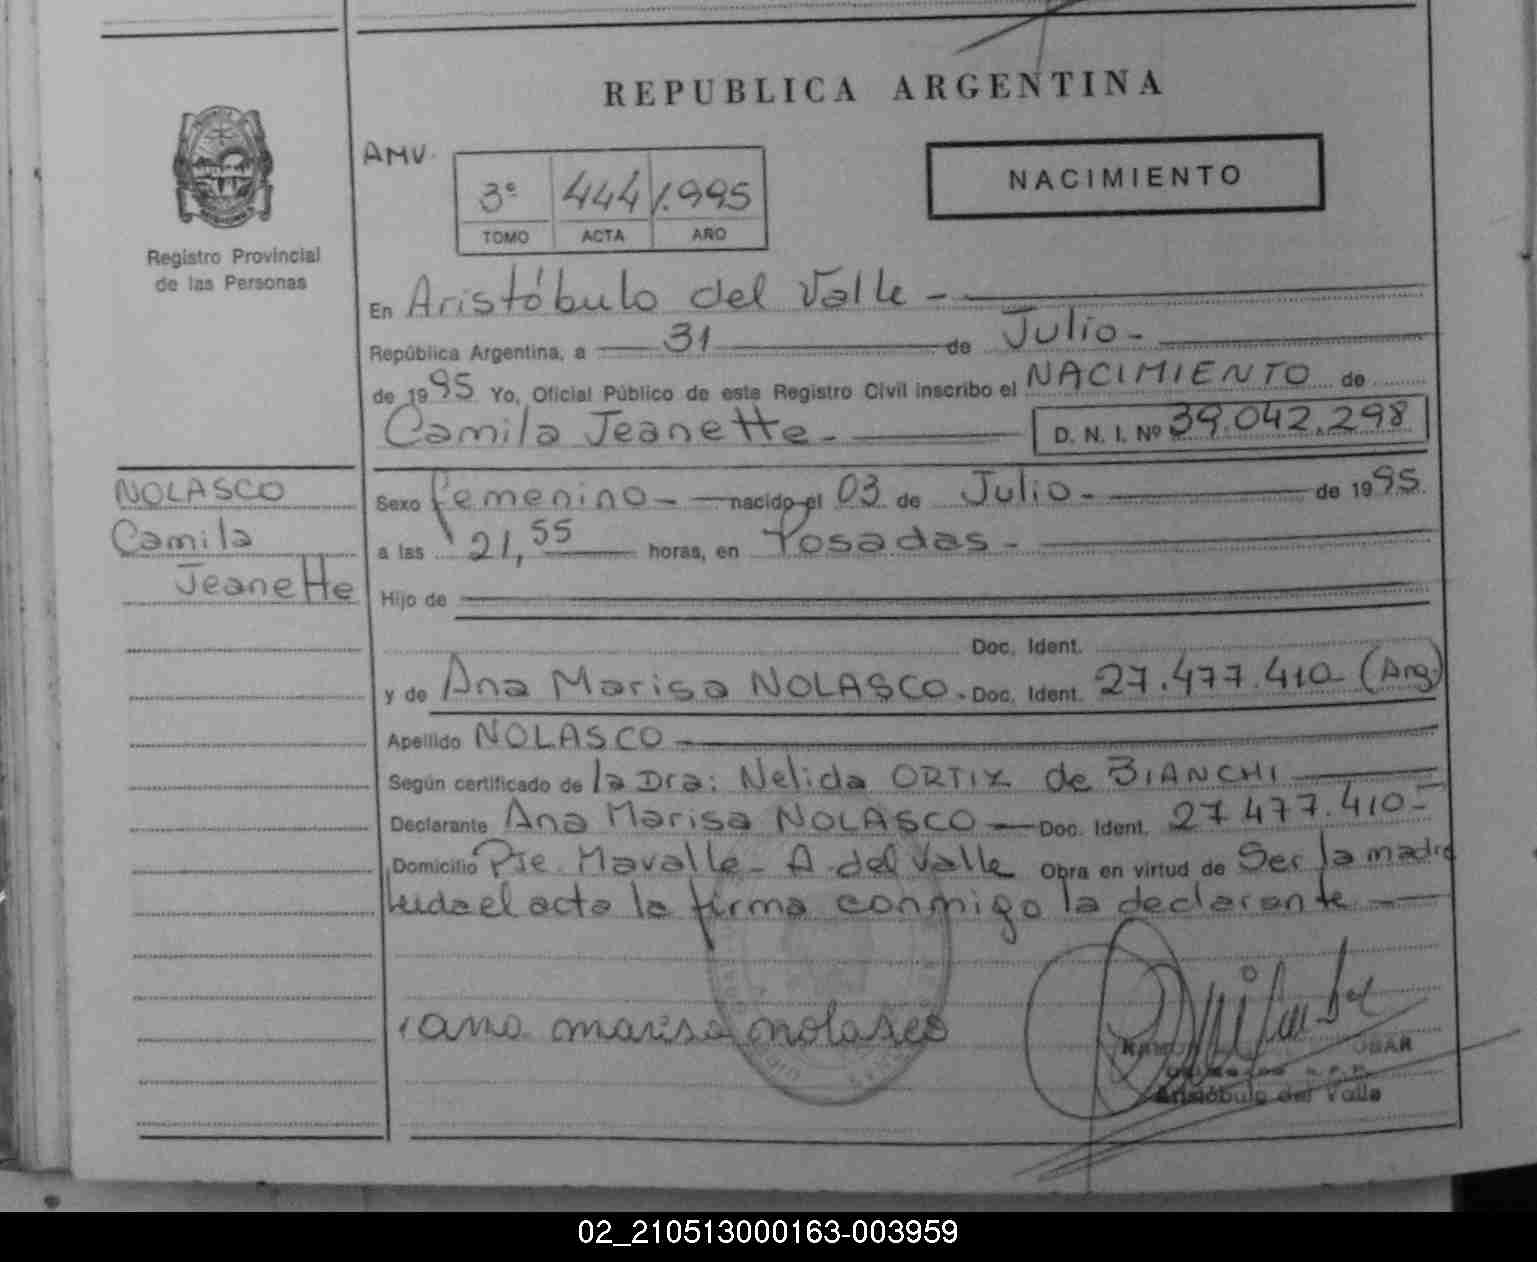 REPUBLICA ARGENTINA
AMV.
3º 444 1.995
TOMO ACTA AÑO
NACIMIENTO
Registro Provincial
de las Personas
En Aristóbulo del Valle -
República Argentina, a 31 de Julio -
de 1995 Yo, Oficial Público de este Registro Civil inscribo el NACIMIENTO de
Camila Jeanette - D. N. I. Nº 39.042.298
NOLASCO
Camila
Jeanette
Sexo femenino - nacido el 03 de Julio - de 1995
a las 21,55 horas, en Posadas -
Hijo de
Doc. Ident.
y de Ana Marisa NOLASCO - Doc. Ident. 27.477.410 - (Arg)
Apellido NOLASCO -
Según certificado de la Dra: Nelida ORTIZ de BIANCHI
Declarante Ana Marisa NOLASCO - Doc. Ident. 27.477.410 -
Domicilio Pje. Mavalle - A. del Valle Obra en virtud de Ser la madre
leida el acta la firma conmigo la declarante
ana marisa nolasco
Aristóbulo del Valle
02_210513000163-003959